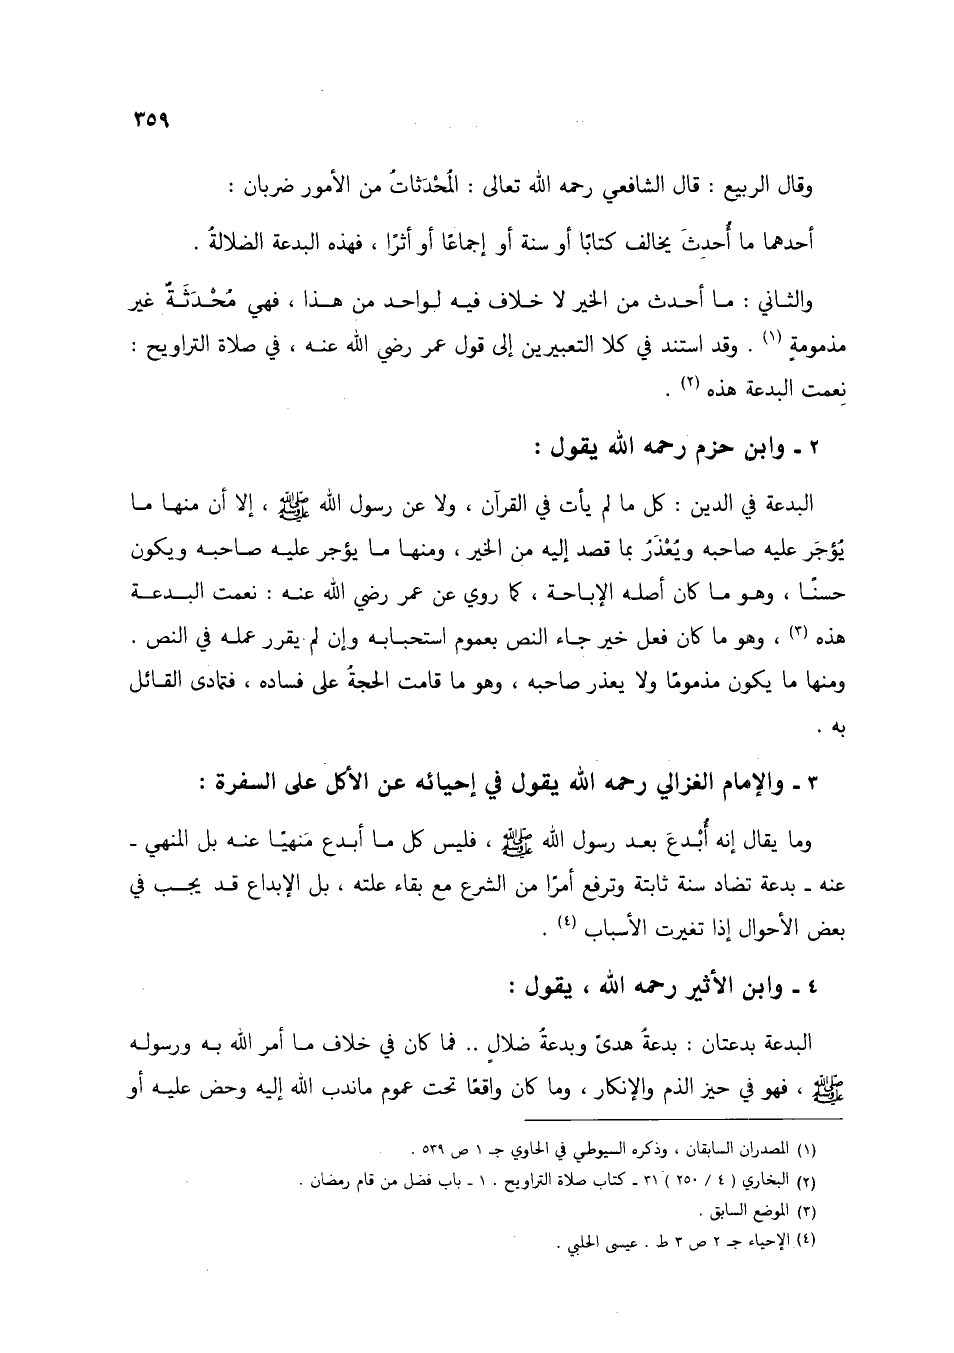 ٣٥٩
وقال الربيع : قال الشافعي رحمه الله تعالى : المُحْدَثاتُ من الأمور ضربان :
أحدهما ما أُحدِثَ يخالف كتابًا أو سنة أو إجماعًا أو أثرًا ، فهذه البدعة الضلالةُ .
والثاني : ما أحدث من الخير لا خلاف فيه لواحد من هذا ، فهي مُحْدَثَةٌ غير
مذمومةٍ (١) . وقد استند في كلا التعبيرين إلى قول عمر رضي الله عنه ، في صلاة التراويح :
نِعمت البدعة هذه (٢) .
٢ ـ وابن حزم رحمه الله يقول :
البدعة في الدين : كل ما لم يأت في القرآن ، ولا عن رسول الله ﷺ ، إلا أن منها ما
يُؤجَر عليه صاحبه ويُعْذَرُ بما قصد إليه من الخير ، ومنها ما يؤجر عليه صاحبه ويكون
حسنًا ، وهو ما كان أصله الإباحة ، كما روي عن عمر رضي الله عنه : نعمت البدعة
هذه (٣) ، وهو ما كان فعل خير جاء النص بعموم استحبابه وإن لم يقرر عمله في النص .
ومنها ما يكون مذمومًا ولا يعذر صاحبه ، وهو ما قامت الحجةُ على فساده ، فتمادى القائل
به .
٣ ـ والإمام الغزالي رحمه الله يقول في إحيائه عن الأكل على السفرة :
وما يقال إنه أُبْدِعَ بعد رسول الله ﷺ ، فليس كل ما أبدع مَنهيًا عنه بل المنهي ـ
عنه ـ بدعة تضاد سنة ثابتة وترفع أمرًا من الشرع مع بقاء علته ، بل الإبداع قد يجب في
بعض الأحوال إذا تغيرت الأسباب (٤) .
٤ ـ وابن الأثير رحمه الله ، يقول :
البدعة بدعتان : بدعةُ هدىً وبدعةُ ضلالٍ .. فما كان في خلاف ما أمر الله به ورسوله
ﷺ ، فهو في حيز الذم والإنكار ، وما كان واقعًا تحت عموم ماندب الله إليه وحض عليه أو
(١) المصدران السابقان ، وذكره السيوطي في الحاوي جـ ١ ص ٥٣٩ .
(٢) البخاري ( ٤ / ٢٥٠ ) ٣١ ـ كتاب صلاة التراويح . ١ ـ باب فضل من قام رمضان .
(٣) الموضع السابق .
(٤) الإحياء جـ ٢ ص ٣ ط . عيسى الحلبي .